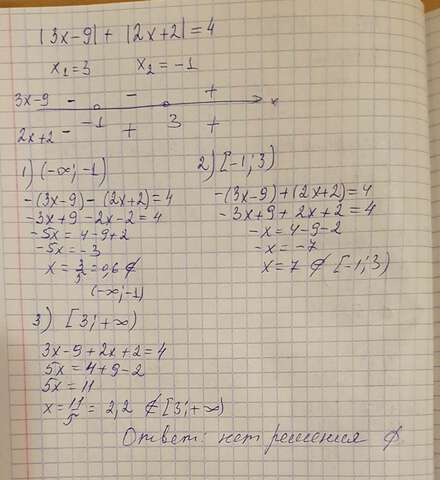 |3x-9| + |2x+2| = 4
x₁=3 x₂=-1
3x-9 - - + x
2x+2 - -1 + 3 +
1) (-∞; -1)
-(3x-9) - (2x+2) = 4
-3x+9 -2x-2 = 4
-5x = 4-9+2
-5x = -3
x = 3/5 = 0,6 ∉
(-∞; -1)
2) [-1; 3)
-(3x-9)+(2x+2)=4
-3x+9+2x+2=4
-x = 4-9-2
-x = -7
x = 7 ∉ [-1; 3)
3) [3; +∞)
3x-9+2x+2=4
5x = 4+9-2
5x = 11
x = 11/5 = 2,2 ∉ [3; +∞)
Ответ: нет решения ∅.